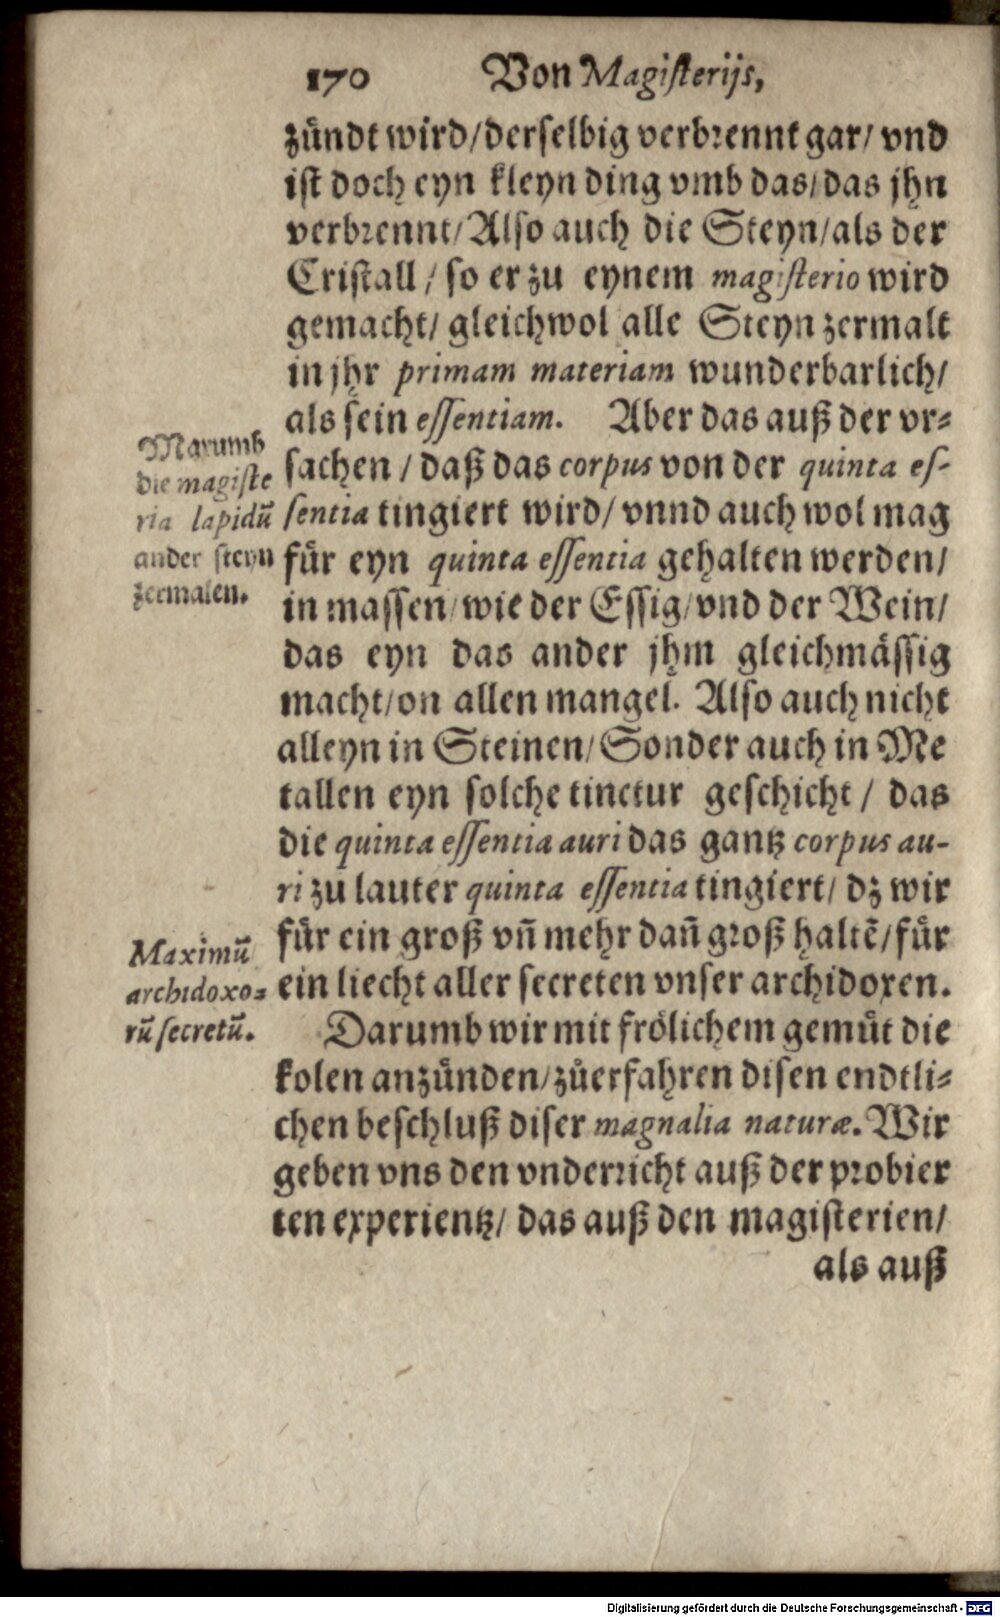 170 Von Magisterijs,
zündt wird/derselbig verbrennt gar/ vnd
ist doch eyn kleyn ding vmb das/das jhn
verbrennt/Also auch die Steyn/als der
Cristall/ so er zu eynem magisterio wird
gemacht/ gleichwol alle Steyn zermalt
in jhr primam materiam wunderbarlich/
als sein essentiam. Aber das auß der vr-
sachen / daß das corpus von der quinta es-
sentia tingiert wird/ vnnd auch wol mag
für eyn quinta essentia gehalten werden/
in massen/wie der Essig/vnd der Wein/
das eyn das ander jhm gleichmässig
macht/on allen mangel. Also auch nicht
alleyn in Steinen/Sonder auch in Me
tallen eyn solche tinctur geschicht / das
die quinta essentia auri das gantz corpus au-
ri zu lauter quinta essentia tingiert/ dz wir
für ein groß vñ mehr dañ groß haltẽ/für
ein liecht aller secreten vnser archidoxen.
Darumb wir mit frölichem gemüt die
kolen anzünden/zůerfahren disen endtli-
chen beschluß diser magnalia naturæ. Wir
geben vns den vnderricht auß der probier
ten experientz/ das auß den magisterien/
als auß
Marumb
die magiste
ria lapidũ
ander steyn
zermalen.
Maximũ
archidoxo-
rũ secretũ.
Digitalisierung gefördert durch die Deutsche Forschungsgemeinschaft - DFG